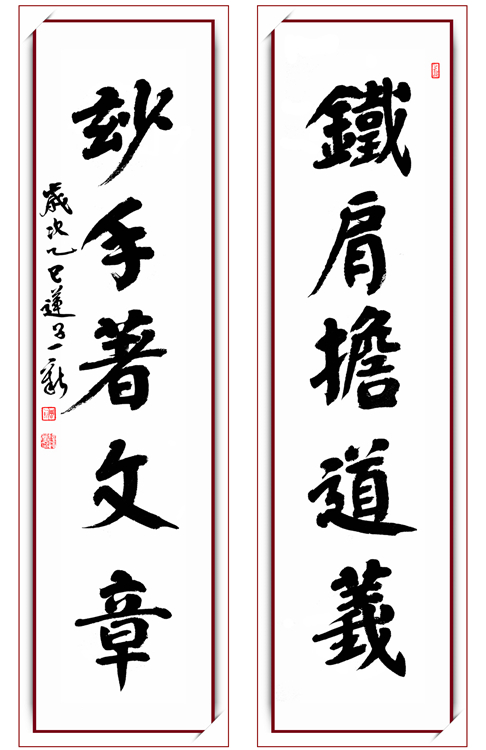 鐵肩擔道義
玅手著文章
歲次乙巳蓮子一